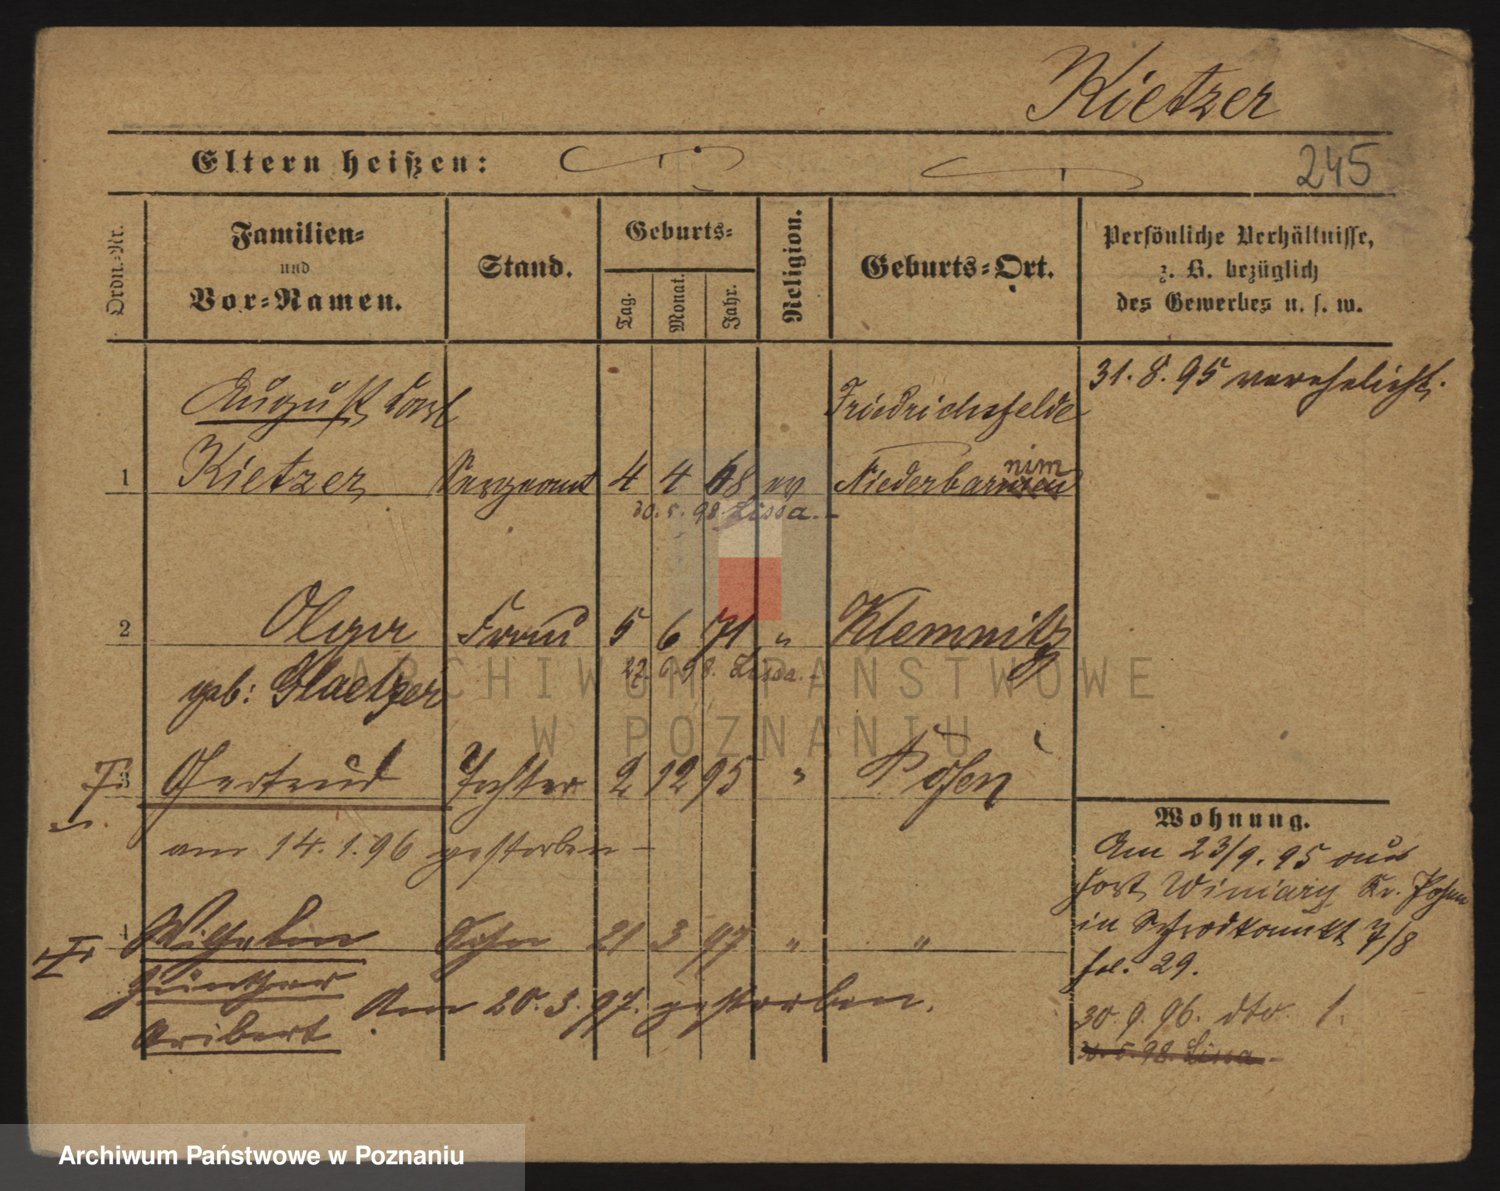 Kietzer
Eltern heißen:
245
Ordn.-Nr.
Familien-
und
Vor-Namen.
Stand.
Geburts-
Tag.
Monat.
Jahr.
Religion.
Geburts-Ort.
Persönliche Verhältnisse,
z. B. bezüglich
des Gewerbes u. s. w.
31.8.95 verehelicht.
August Carl Friedrichsfelde
1 Kietzer Sergeant 4 4 68 ev Niederbarnim
30.5.98. Lissa.-
2 Olga Frau 5 6 71 " Klemnitz
27.6.98. Lissa.-
geb: Glaetzer
3 Gertrud Tochter 2 12 95 " Posen
am 14.1.96 gestorben -
4 Wilhelm Sohn 21 3 97 " "
Günther
Am 20.3.97. gestorben.
Aribert
Wohnung.
Am 23/9.95 aus
Fort Winiary Kr. Posen
in 7/8
fol. 29.
30.9.96. dto. 1.
30.5.98. Lissa -
ARCHIWUM PAŃSTWOWE
W POZNANIU
Archiwum Państwowe w Poznaniu